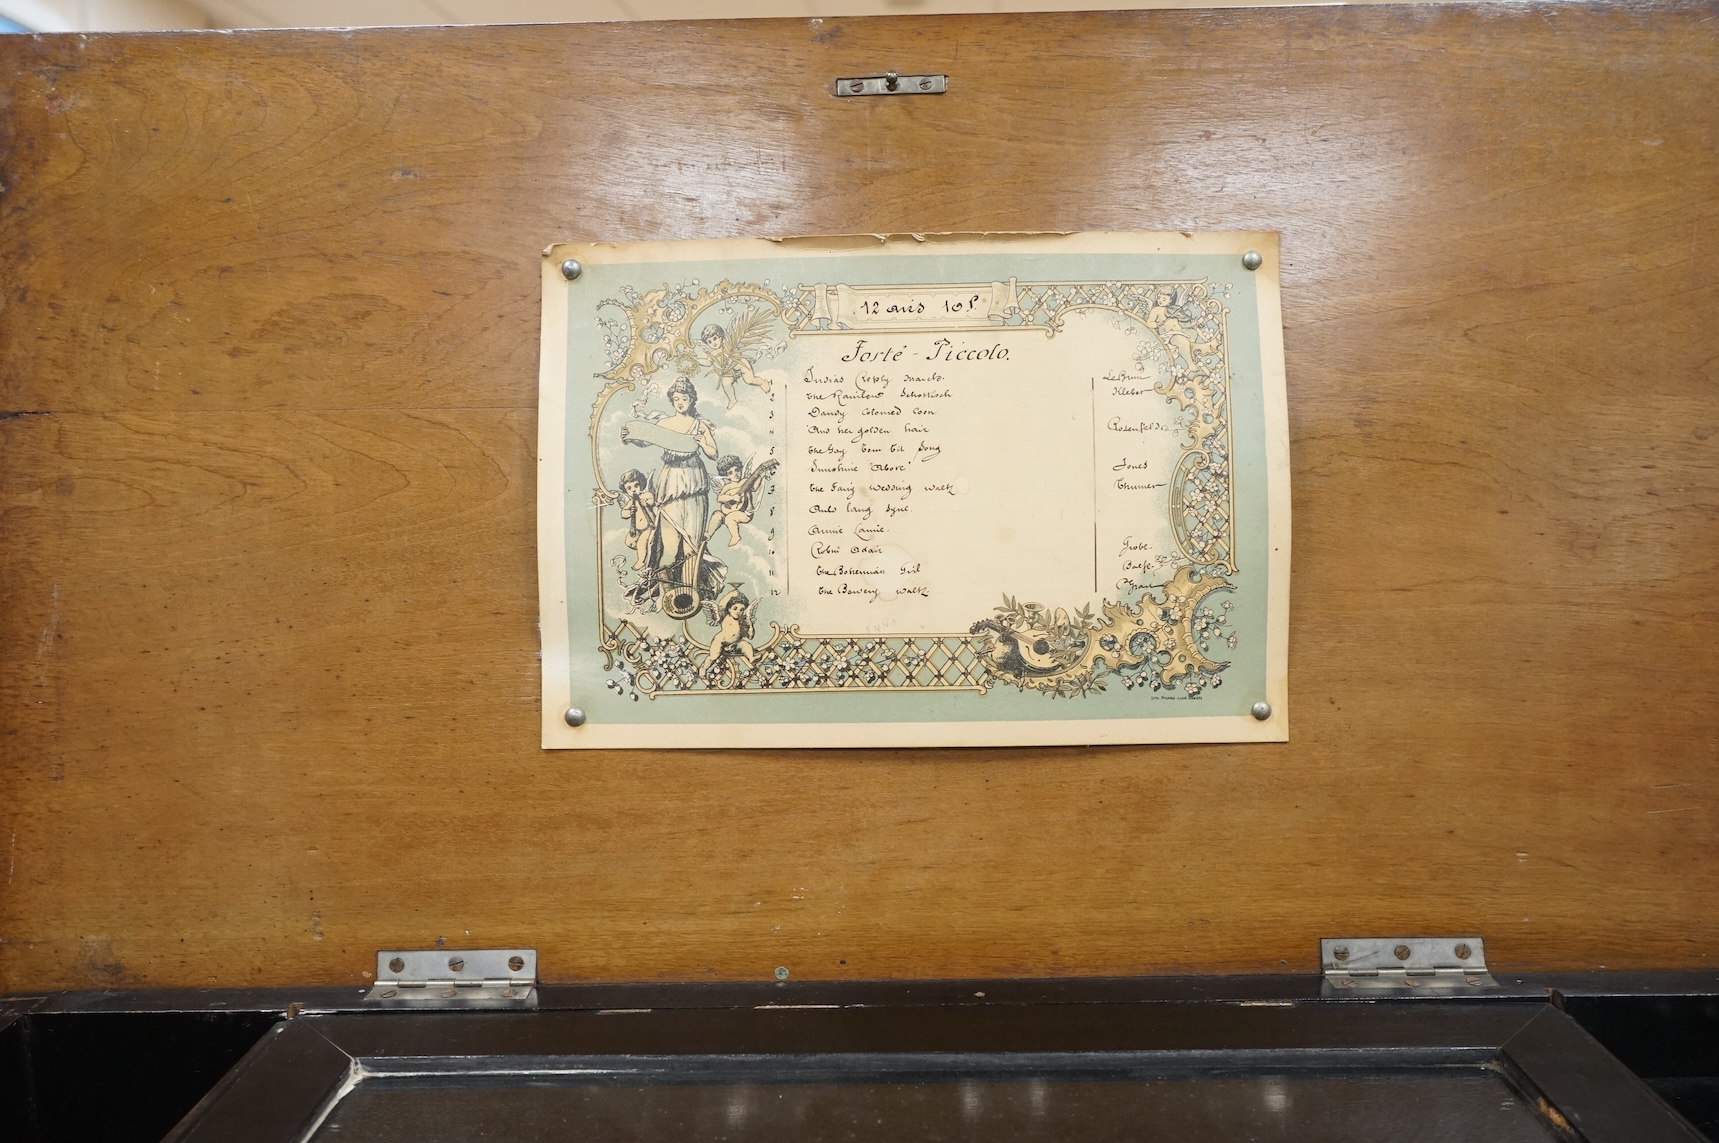 12 airs 10 P.
Forté - Piccolo.
1 March.
2 The Rainbow Schottisch Kleber
3 Dandy Colored Coon
4 And her golden hair Rosenfeld
5 The Gay Tom Tit Song
6 Sunshine Above Jones
7 The Fairy Wedding waltz Thurner
8 Auld lang Syne.
9 Annie Laurie.
10 Robin Adair Grobe.
11 The Bohemian Girl Balfe.
12 The Bowery waltz